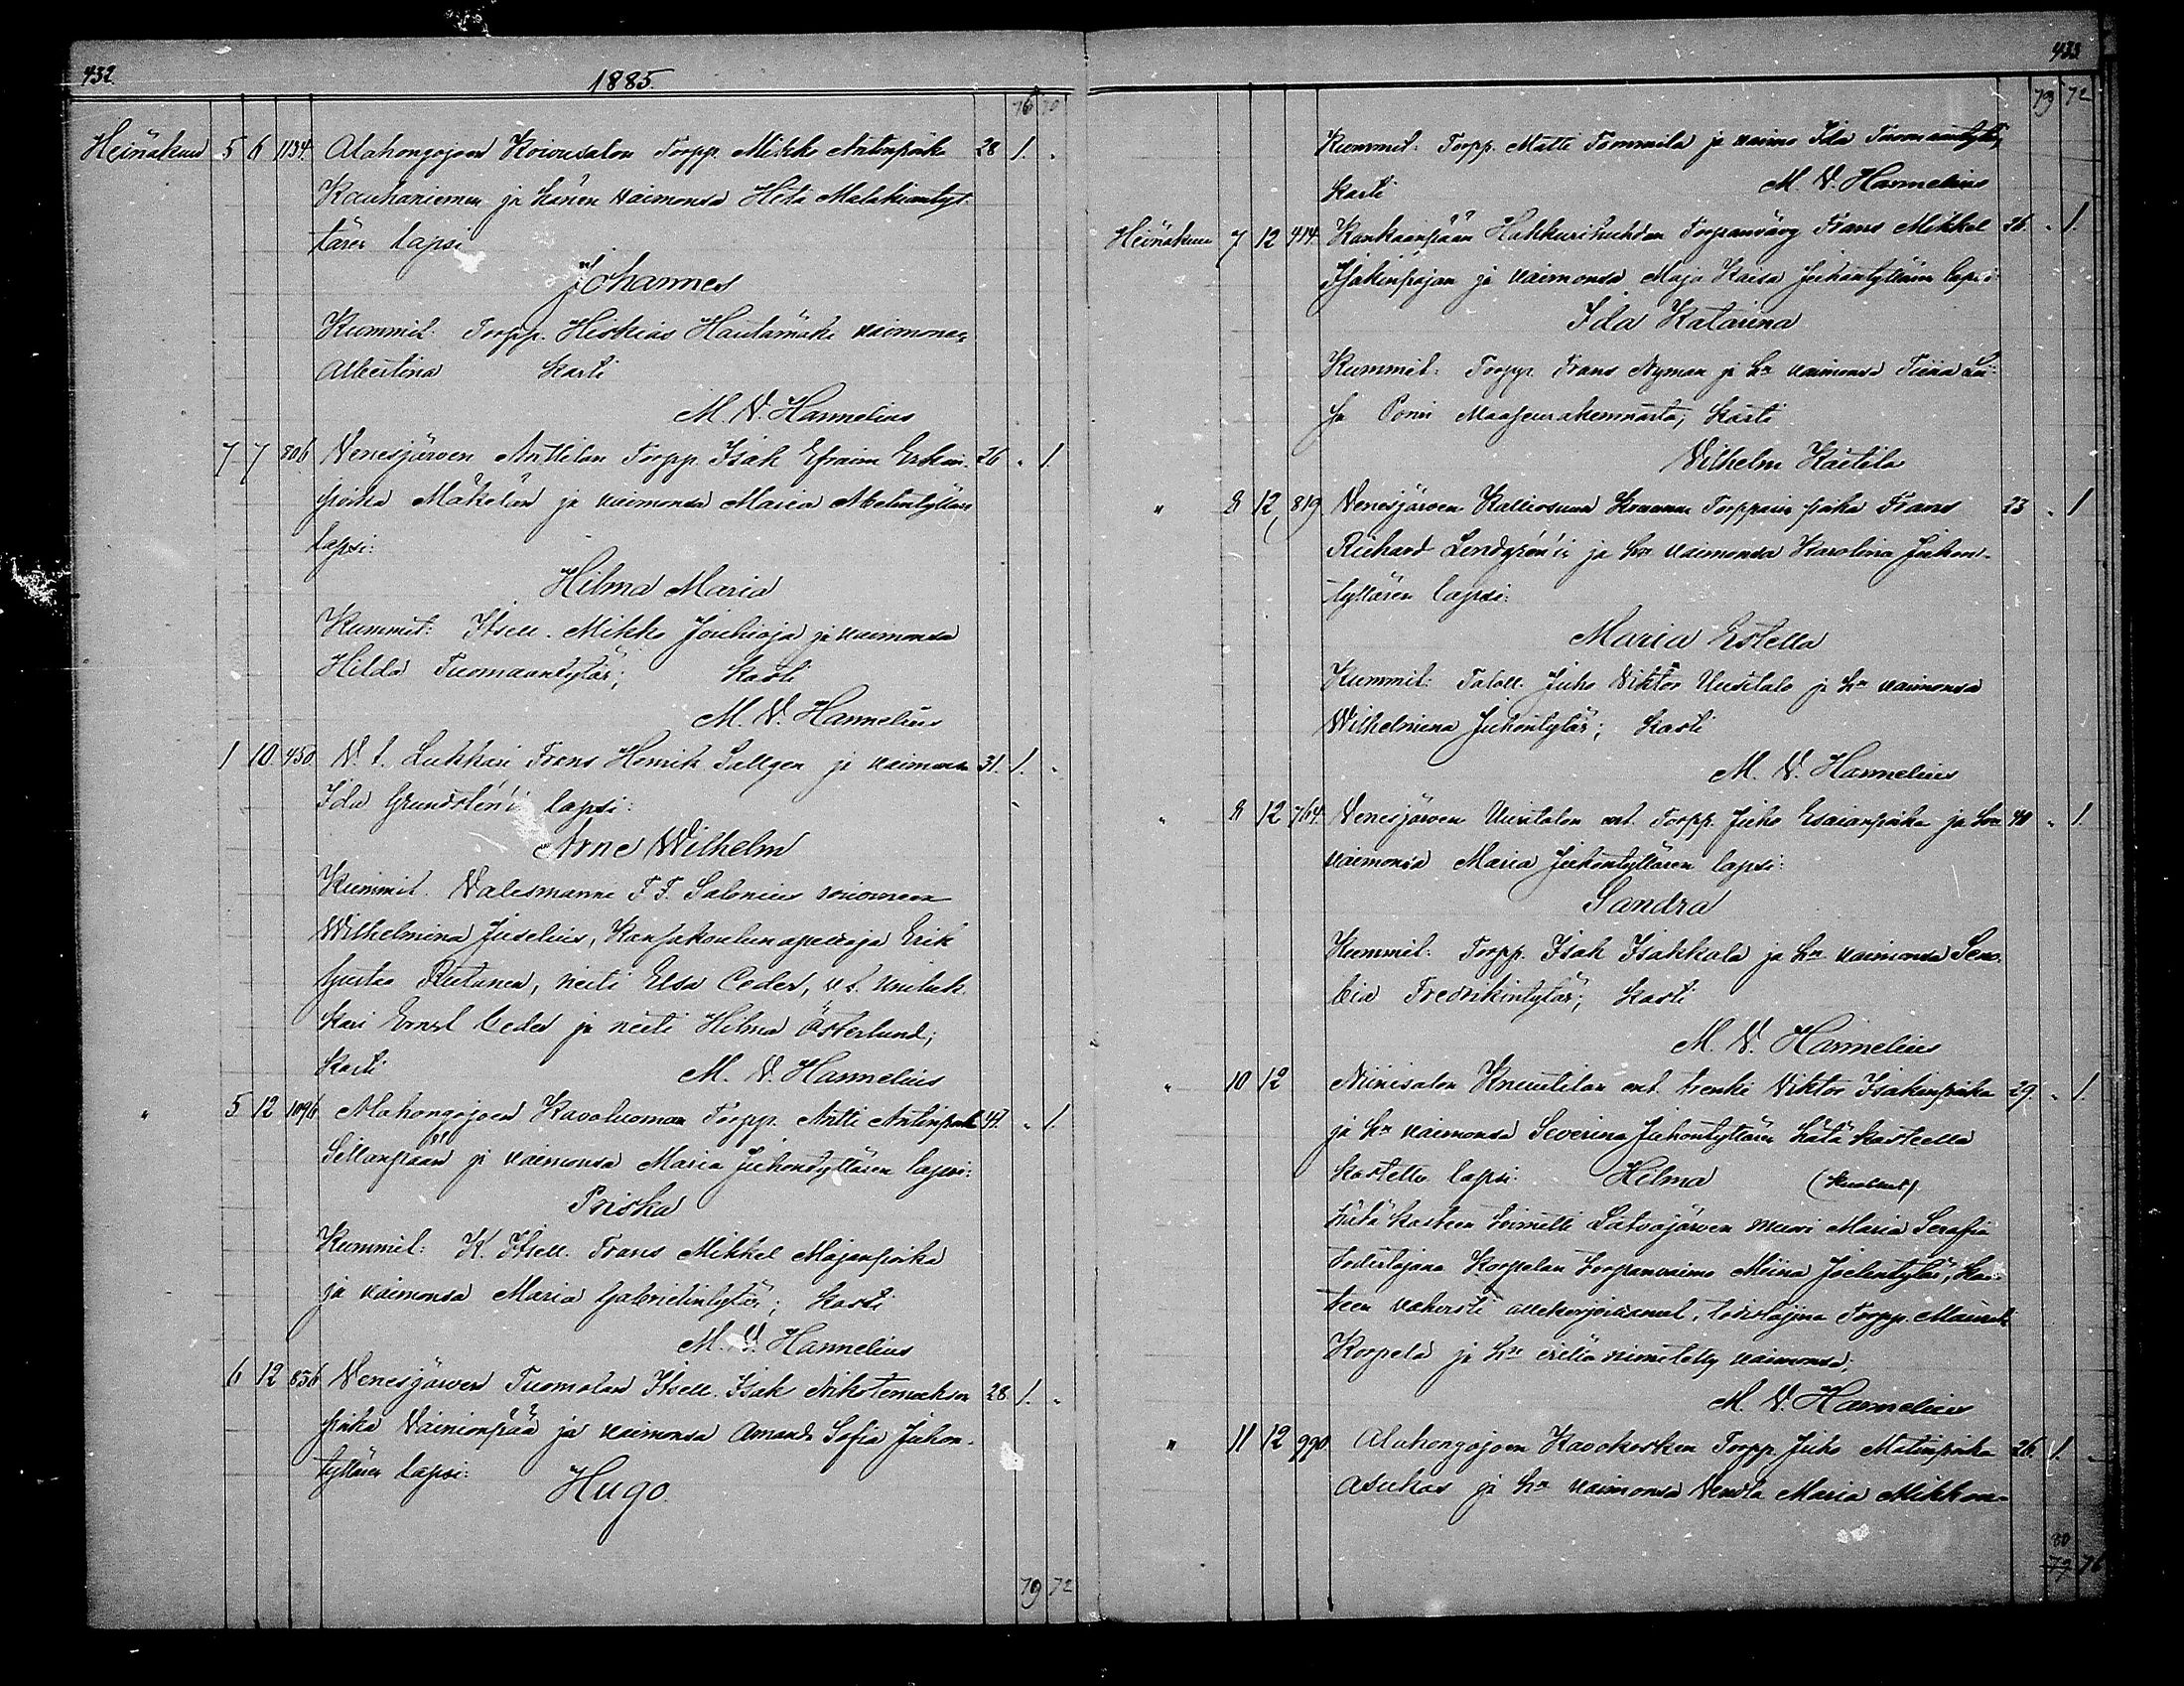 432.
1885.
76 70
Heinäkuu 5 6 1134. Alahongojoen Koivusalon Torpp. Mikko Antinpoika 28 1. "
Kauhaniemen ja hänen vaimonsa Heta Malakiantyt-
tären lapsi
Johannes
Kummit: Torpp. Hiskias Hautamäki vaimonens
Albertina Kasti
M. V. Hannelius
7 7 806 Venesjärven Anttilan Torpp. Isak Efraim Erkin- 26 " 1.
poika Mäkelän ja vaimonsa Maria Matintyttären
lapsi:
Hilma Maria
Kummit: Itsell. Mikko Jouhioja ja vaimonsa
Hilda Tuomaantytär; Kasti
M. V. Hannelius
1 10 450. V. t. Lukkari Frans Henrik Sallgen ja vaimonsa 31. 1. "
Ida Grundstén'i lapsi:
Arne Wilhelm
Kummit. Valesmanni F. F. Salonius
Wilhelmina Juselius, Kansakoulun opettaja Erik
Gustaa Rutanen, neiti Elsa Ceder, v. t.
kari Ernst Ceder ja neiti Hilma Österlund;
Kasti M. V. Hannelius
" 5 12 1096 Alahongojoen Kavoluoman Torpp. Antti Antinpoika 42. " 1.
Sillanpään ja vaimonsa Maria Juhontyttären lapsi:
Priska
Kummit: K. Itsell. Frans Mikkel Majanpoika
ja vaimonsa Maria Gabrielintytär; Kasti
M. V. Hannelius
6 12 856 Venesjärven Tuomolan Itsell. Isak Nikotemuksen 28. 1. "
poika Vainionpää ja vaimonsa Amanda Sofia Juhon-
tyttären lapsi:
Hugo.
79 72
433
79 72
Kummit: Torpp. Matti Tommila ja vaimo Ida Tuomaantytär;
Kasti M. V. Hannelius
Heinäkuu 7 12 414. Kankaanpään Hakkurihuhdan Torpanväry Frans Mikkel 26. " 1.
Isakinpojan ja vaimonsa Maja Kaisa Juhontyttären lapsi
Ida Katarina
Kummit: Torpp. Frans Nyman ja hn vaimonsa Tiina
sa Porin Maaseurakunnasta; Kasti
Vilhelm Kaetila
" 8 12 819 Venesjärven Kalliosuun Torpparin poika Frans 23 " 1
Richard Lindgrén'in ja hn vaimonsa Karolina Juhon-
tyttären lapsi:
Maria Estella
Kummit: Taloll. Juho Viktor Uusitalo ja hn vaimonsa
Wilhelmina Juhontytär; Kasti
M. V. Hannelius
" 8 12 764. Venesjärven Uusitalon ent. Torpp. Juho Esaianpoika ja hn 40 " 1.
vaimonsa Maria Juhontyttären lapsi:
Sandra
Kummit: Torpp. Isak Isakkala ja hn vaimonsa Seno-
bia Fredrikintytär; Kasti
M. V. Hannelius
" 10 12 Niinisalon Knuutilan ent. trenki Viktor Isakinpoika 29. " 1.
ja hn vaimonsa Severina Juhontyttären hätä kasteella
kastettu lapsi: Hilma (kuollut)
hätä kasteen toimitti Satojärven muori Maria Serafia
todistajana Korpelan torpanvaimo Miina Joelintytär; Kas-
teen vahvisti allekirjoittanut, todistajina Torpp.
Korpela ja hn nimitetty vaimonsa;
M. V. Hannelius
" 11 12 990 Alahongojoen Kavokosken Torpp. Juho Matinpoika 26. 1. "
Asukas ja hn vaimonsa Vendla Maria Mikkon-
80
79 76